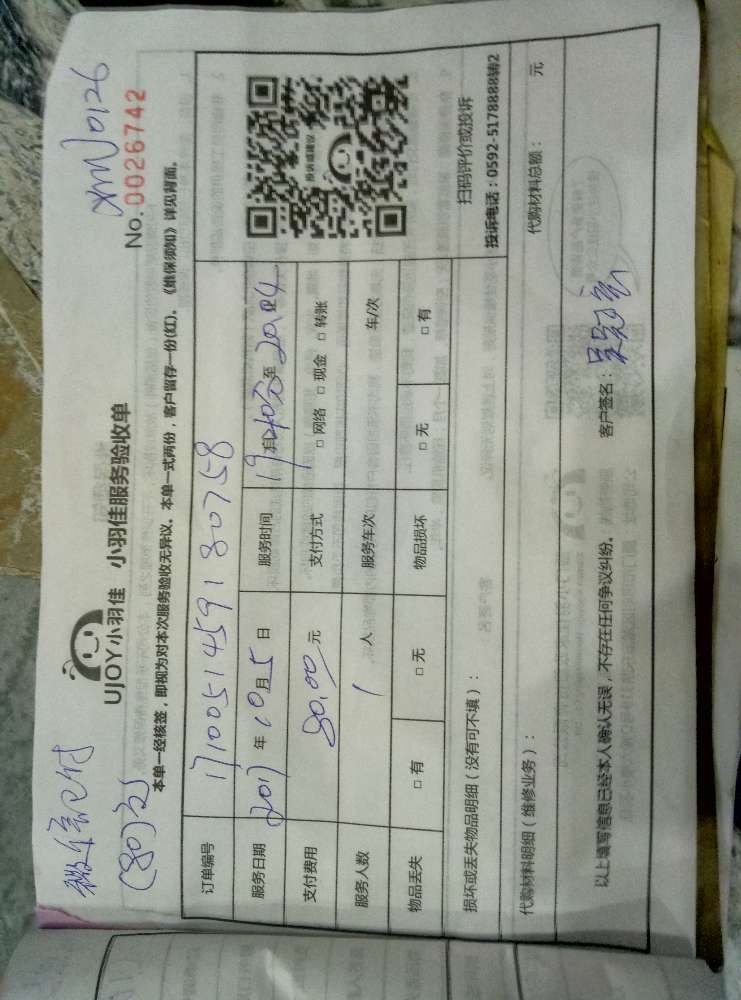 微信已付
(80元)
xmJ0126
UJOY小羽佳 小羽佳服务验收单
No.0026742
本单一经核签，即视为对本次服务验收无异议。本单一式两份，客户留存一份(红)。《维保须知》详见背面。
订单编号 171005145918 0758
服务日期 2017 年 10 月 5 日 服务时间 19 时 40分 至 20.04
支付费用 80.00 元 支付方式 □ 网络 □ 现金 □ 转账
服务人数 1 人 服务车次 车/次
物品丢失 □ 有 □ 无 物品损坏 □ 无 □ 有
投诉或建议
扫码评价或投诉
投诉电话：0592-5178888转2
损坏或丢失物品明细（没有可不填）：
代购材料明细（维修业务）： 代购材料总额： 元
以上填写信息已经本人确认无误，不存在任何争议纠纷。 客户签名：